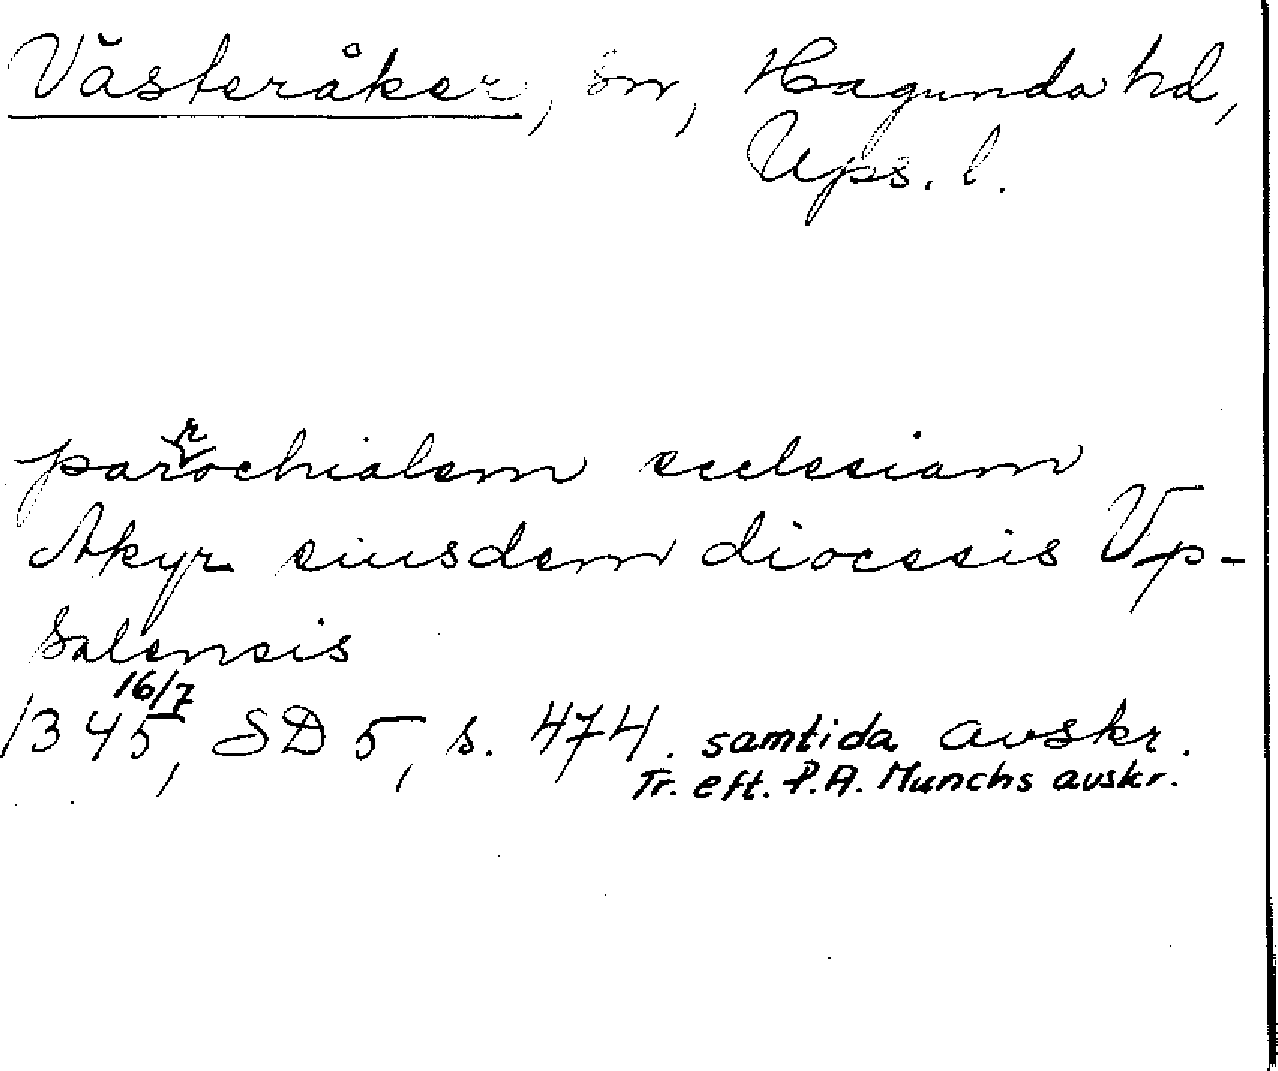 Västeråker, sn, Hagunda hd,
Ups. l.
parrochialem ecclesiam
Akyr eiusdem diocesis Vp-
salensis
16/7
1345, SD 5, s. 474. samtida avskr.
Tr. eft. P.A. Munchs avskr.